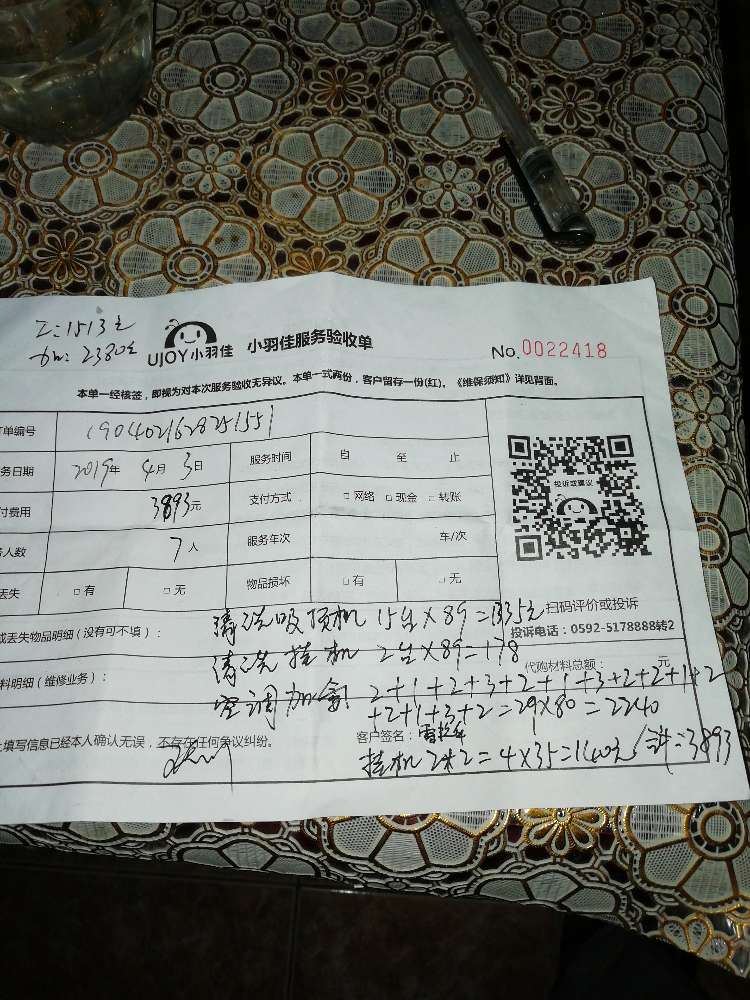 工:1513元
加:2380元
UJOY小羽佳 小羽佳服务验收单
No.0022418
本单一经核签,即视为对本次服务验收无异议。本单一式两份,客户留存一份(红)。《维保须知》详见背面。
单编号 1904021628251551
务日期 2019年 4月 3日 服务时间 自 至 止
付费用 3893元 支付方式 □网络 □现金 □转账
人数 7人 服务车次 车/次
丢失 □有 □无 物品损坏 □有 □无
投诉或建议
扫码评价或投诉
投诉电话:0592-5178888转2
或丢失物品明细(没有可不填):
清洗吸顶机 15台×89=1335元
清洗挂机 2台×89=178
料明细(维修业务): 代购材料总额: 元
空调加氟 2+1+2+3+2+1+3+2+2+1+2
+2+1+3+2=29×80=2240
填写信息已经本人确认无误,不存在任何争议纠纷。 客户签名:
挂机2+2=4×35=140元 计:3893